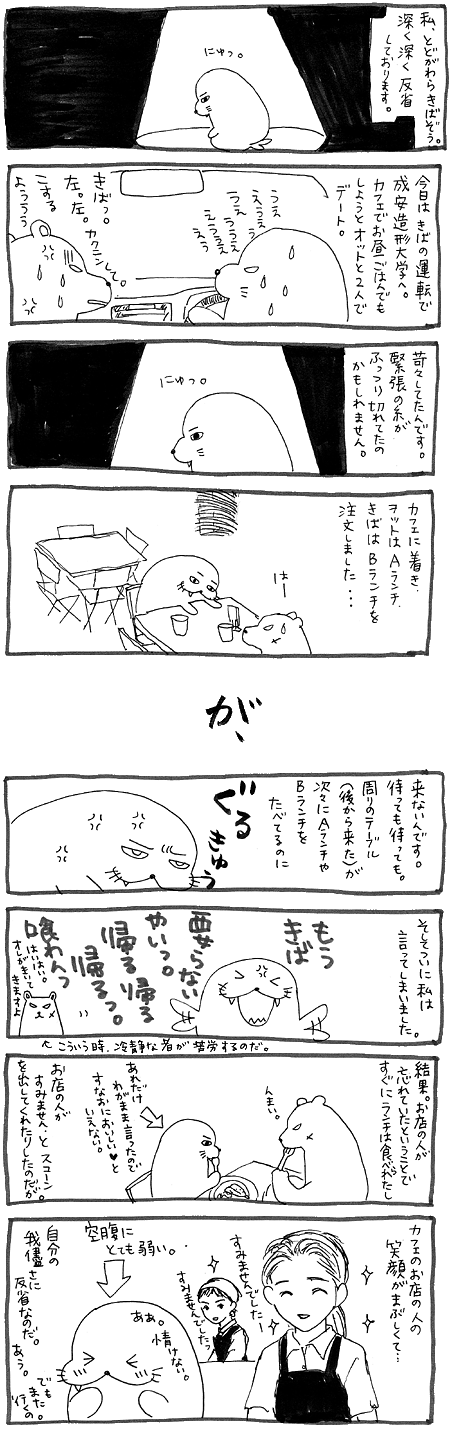 私、とどがわらきばぞう。
深く深く反省
しております。
にゅっ。
今日はきばの運転で
成安造形大学へ。
カフェでお昼ごはんでも
しようとオットと2人で
デート。
うえ
ええうえ
うえうええ
えうううえ
えう
きばっ。
カクニンして。
左。左。
こする
ようううう
苛々してたんです。
緊張の糸が
ふっつり切れてたの
かもしれません。
にゅっ。
カフェに着き、
オットはAランチ、
きばはBランチを
注文しました・・・
はー
が、
来ないんです。
待っても待っても。
周りのテーブル
(後から来た)が
次々にAランチや
Bランチを
たべてるのに
ぐる
きゅう
そしてついに私は
言ってしまいました。
もう
きば
要らない
やいっ。
帰る帰る
帰るっ。
喰わんっ
はいはい。
オレがまいて
きますよ
へこういう時、冷静な者が苦労するのだ。
結果。お店の人が
忘れていたということで
すぐにランチは食べれたし
んまい。
あれだけ
わがまま言ったので
すなおにおいしい♥と
いえない。
お店の人が
すみません・とスコーン
を出してくれたりしたのだが、
カフェのお店の人の
笑顔がまぶしくて…
すみませんでしたー
すみませんでしたっ
空腹に
とても弱い。
ああ。
情けない。
自分の
我儘さに
反省なのだ。
あう。
でも
また。
行くの